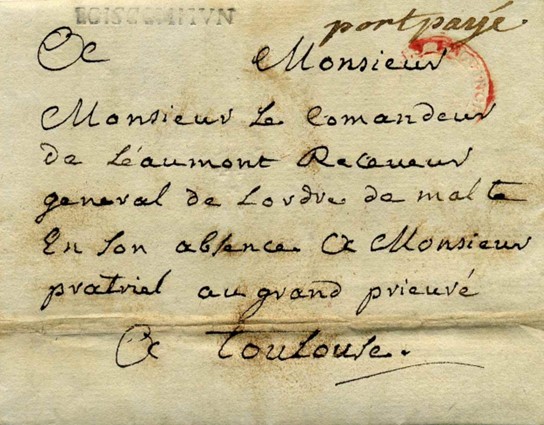 BOISCOMMUN
port payé
A Monsieur
Monsieur Le Comandeur
de Léaumont Receveur
general de Lordre de malte
En Son absence A Monsieur
pratriel au grand prieuré
A Toulouse.